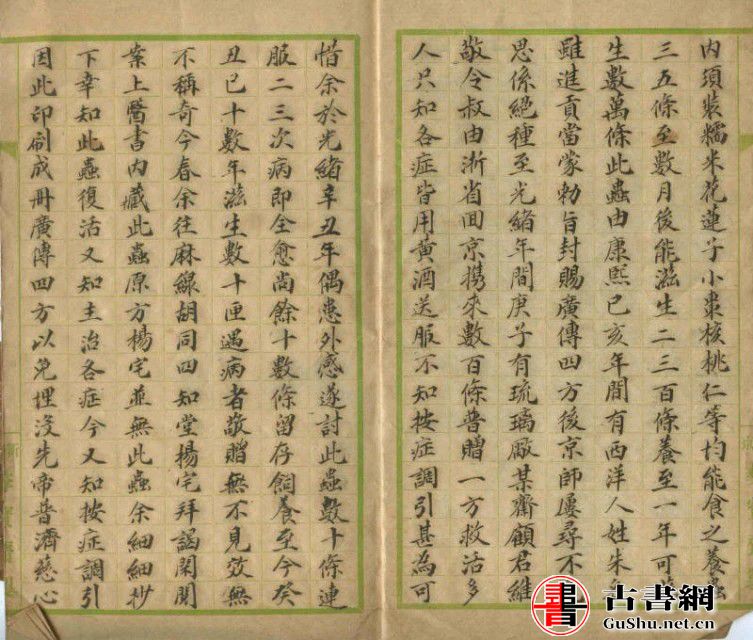 內須裝糯米花蓮子小棗核桃仁等均能食之養蟲
三五條至數月後能滋生二三百條養至一年可
生數萬條此蟲由康熙己亥年間有西洋人姓朱
雖進貢當蒙勅旨封賜廣傳四方後京師屢尋不
思係絕種至光緒年間庚子有琉璃厰某齋顧君維
敬令叔由浙省回京携來數百條普贈一方救活多
人只知各症皆用黃酒送服不知按症調引甚為可
惜余於光緒辛丑年偶患外感遂討此蟲數十條連
服二三次病即全愈尚餘十數條留存飼養至今癸
丑已十數年滋生數十匣遇病者敬贈無不見效無
不稱奇今春余往麻線胡同四知堂楊宅拜謁閑閱
案上醫書內藏此蟲原方楊宅並無此蟲余細細抄
下幸知此蟲復活又知主治各症今又知按症調引
因此印刷成冊廣傳四方以免埋沒先帝普濟慈心
書
古書網
GuShu.net.cn